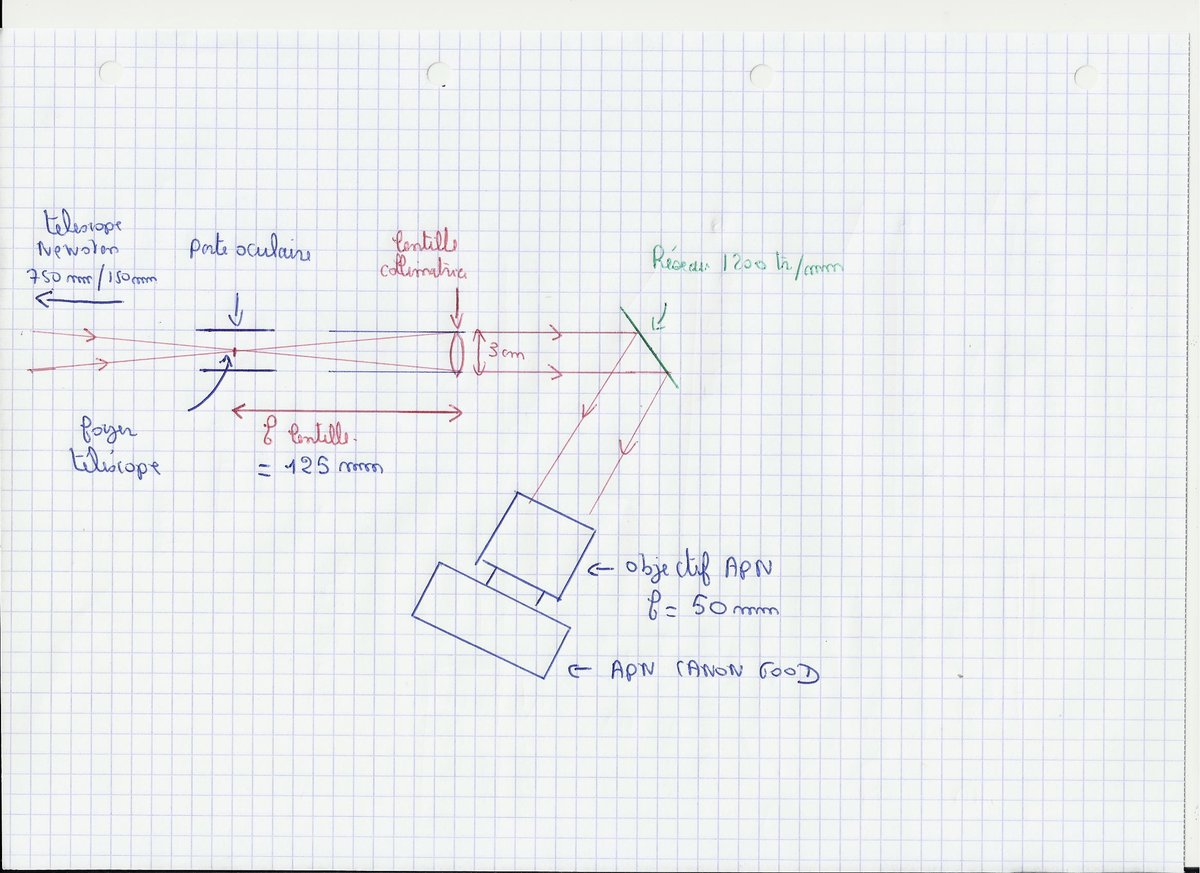 télescope
Newston
750 mm/150mm
porte oculaire
lentille
collimatrice
Réseau 1200 tr/mm
3cm
foyer
téléscope
f lentille.
= 125 mm
← objectif APN
f = 50 mm
← APN CANON 600D